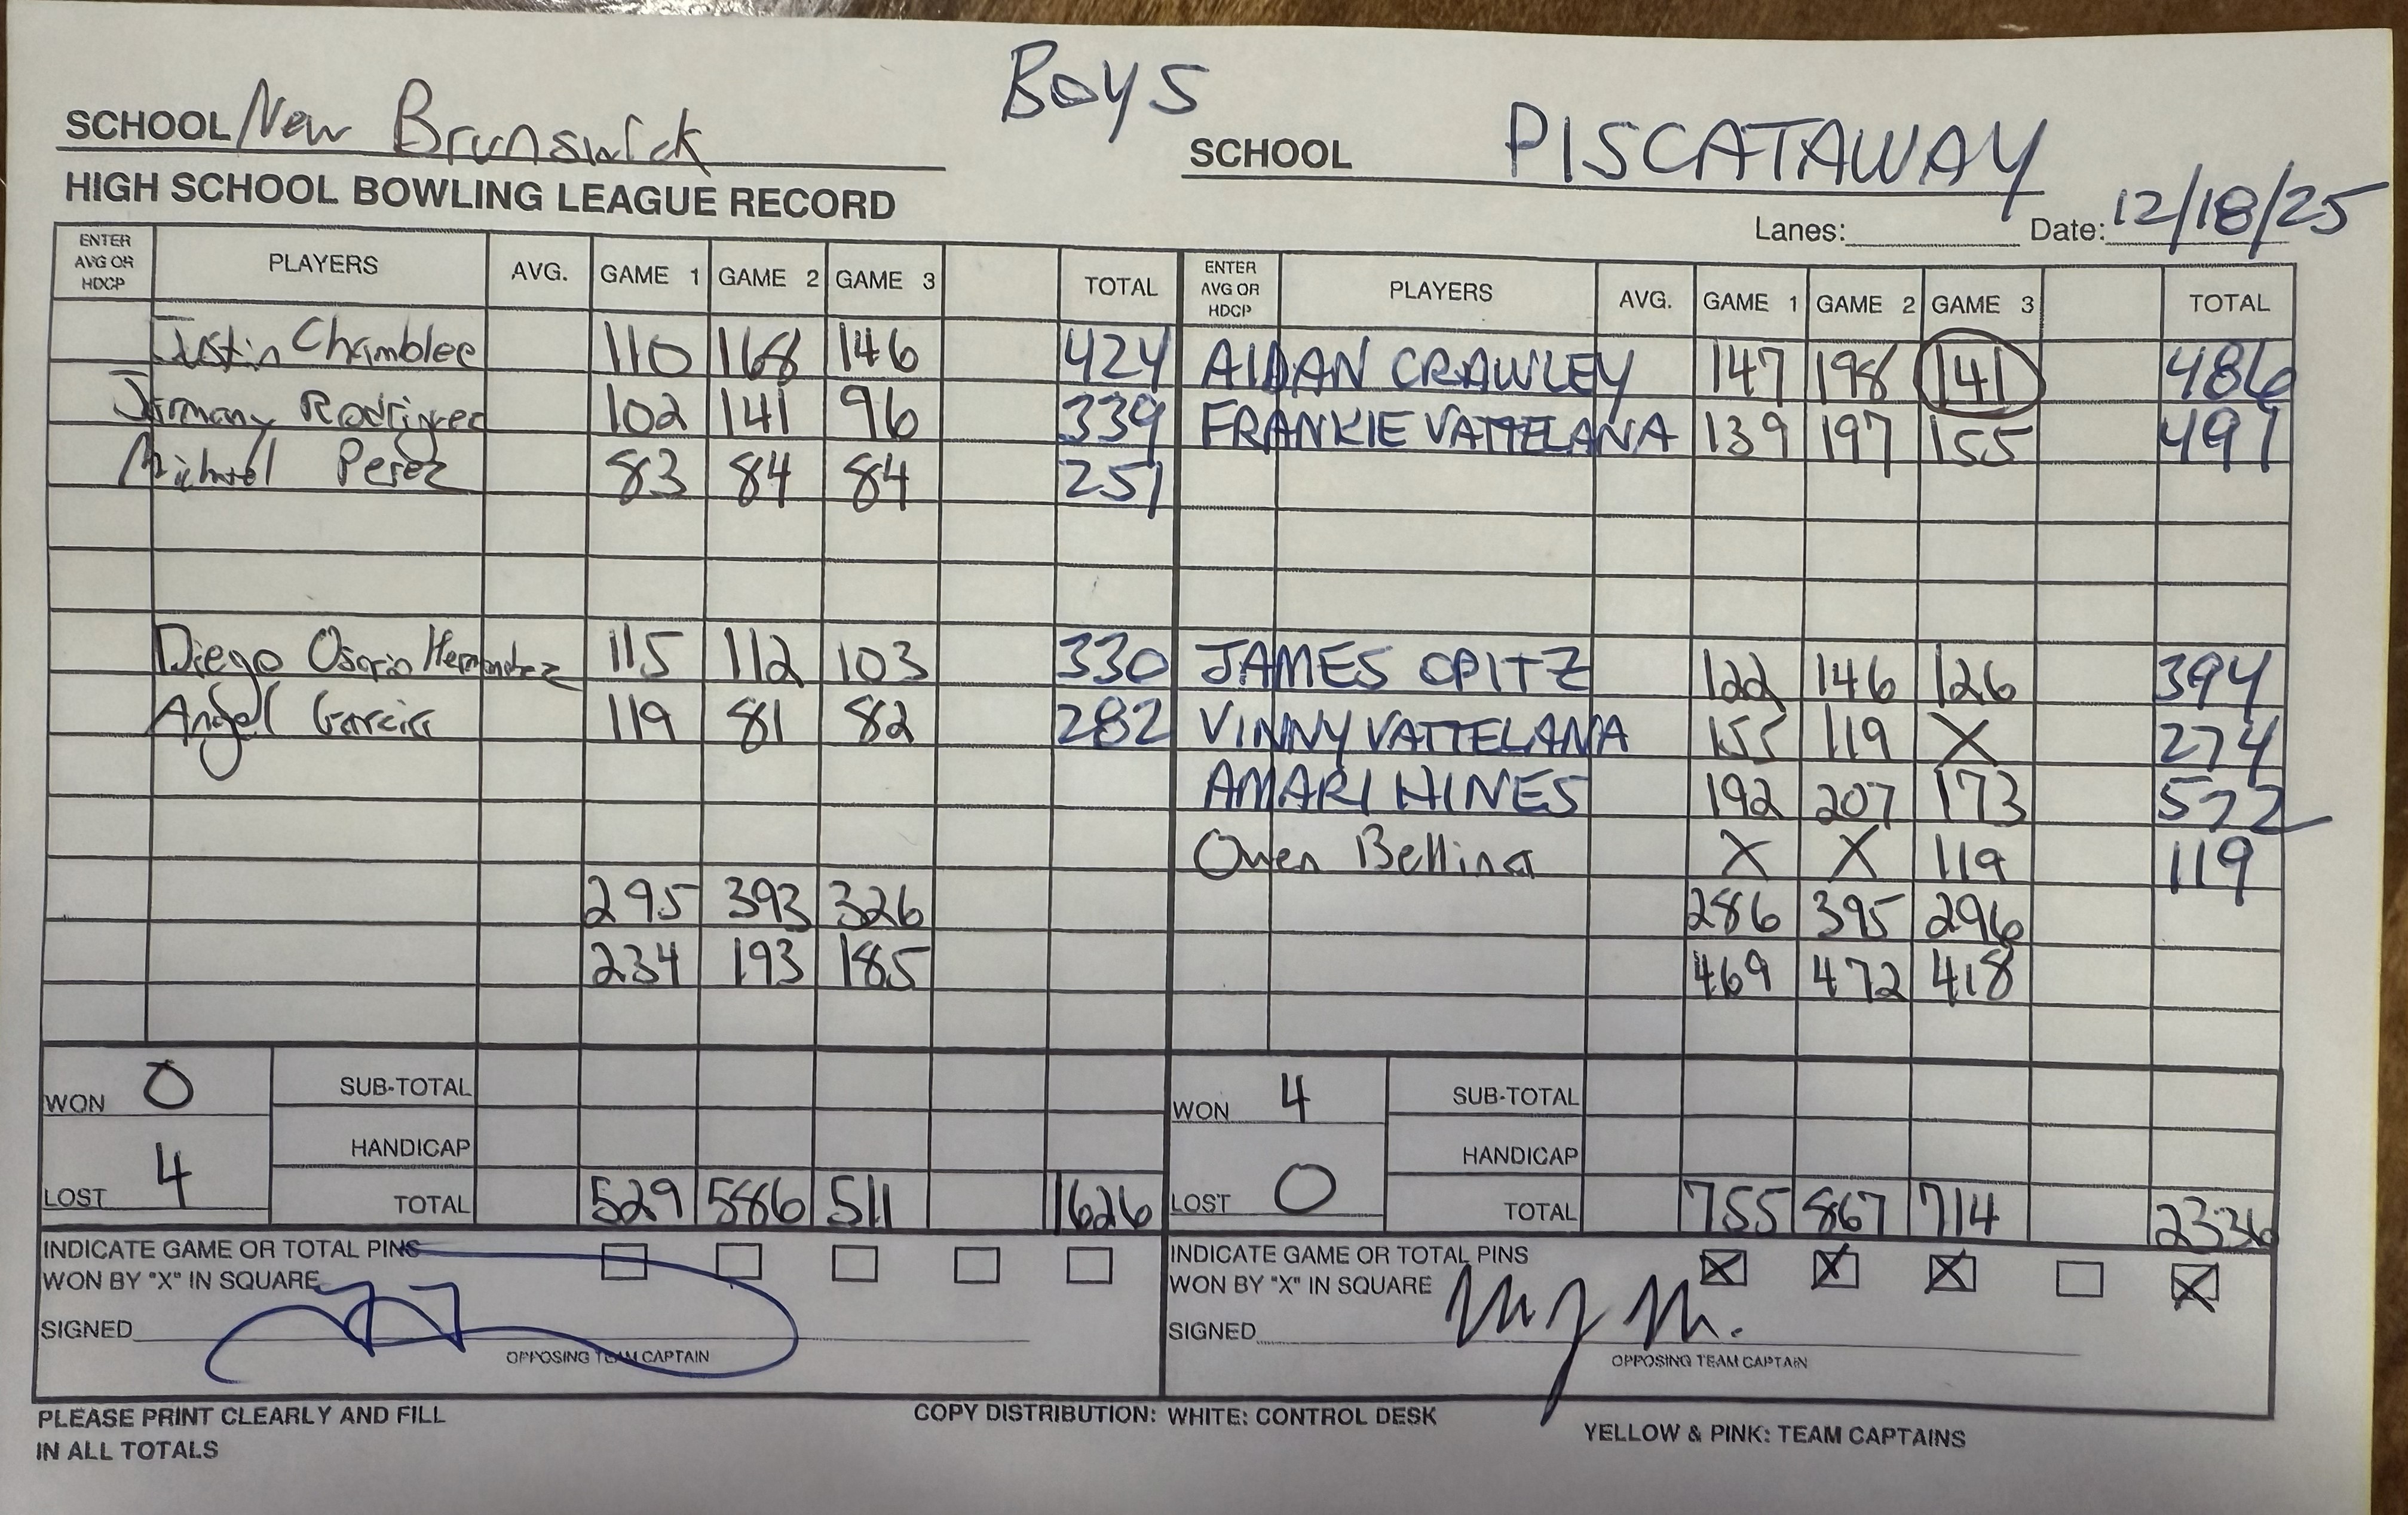 Boys
SCHOOL New Brunswick SCHOOL PISCATAWAY
HIGH SCHOOL BOWLING LEAGUE RECORD Lanes: Date: 12/18/25
ENTER AVG OR HDCP PLAYERS AVG. GAME 1 GAME 2 GAME 3 TOTAL ENTER AVG OR HDCP PLAYERS AVG. GAME 1 GAME 2 GAME 3 TOTAL
Justin Chamblee 110 168 146 424 AIDAN CRAWLEY 147 198 141 486
Jormany Rodriguez 102 141 96 339 FRANKIE VATTELANA 139 197 155 491
Michael Perez 83 84 84 251
Diego Osorio Hernandez 115 112 103 330 JAMES OPITZ 122 146 126 394
Angel Garcia 119 81 82 282 VINNY VATTELANA 155 119 X 274
AMARI HINES 192 207 173 572
Owen Bellina X X 119 119
295 393 326 286 395 296
234 193 185 469 472 418
WON 0 SUB-TOTAL WON 4 SUB-TOTAL
HANDICAP HANDICAP
LOST 4 TOTAL 529 586 511 1626 LOST 0 TOTAL 755 867 714 2336
INDICATE GAME OR TOTAL PINS INDICATE GAME OR TOTAL PINS
WON BY "X" IN SQUARE WON BY "X" IN SQUARE X X X X
SIGNED SIGNED
OPPOSING TEAM CAPTAIN OPPOSING TEAM CAPTAIN
PLEASE PRINT CLEARLY AND FILL COPY DISTRIBUTION: WHITE: CONTROL DESK YELLOW & PINK: TEAM CAPTAINS
IN ALL TOTALS